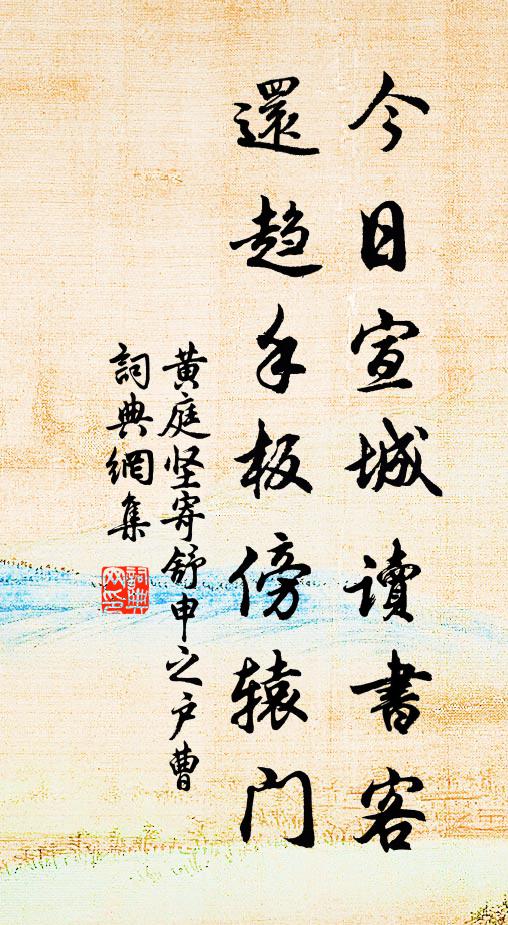 今日宣城讀書客
還趋手板傍辕门
黄庭坚寄舒申之户曹
詞典網集
詞典网印